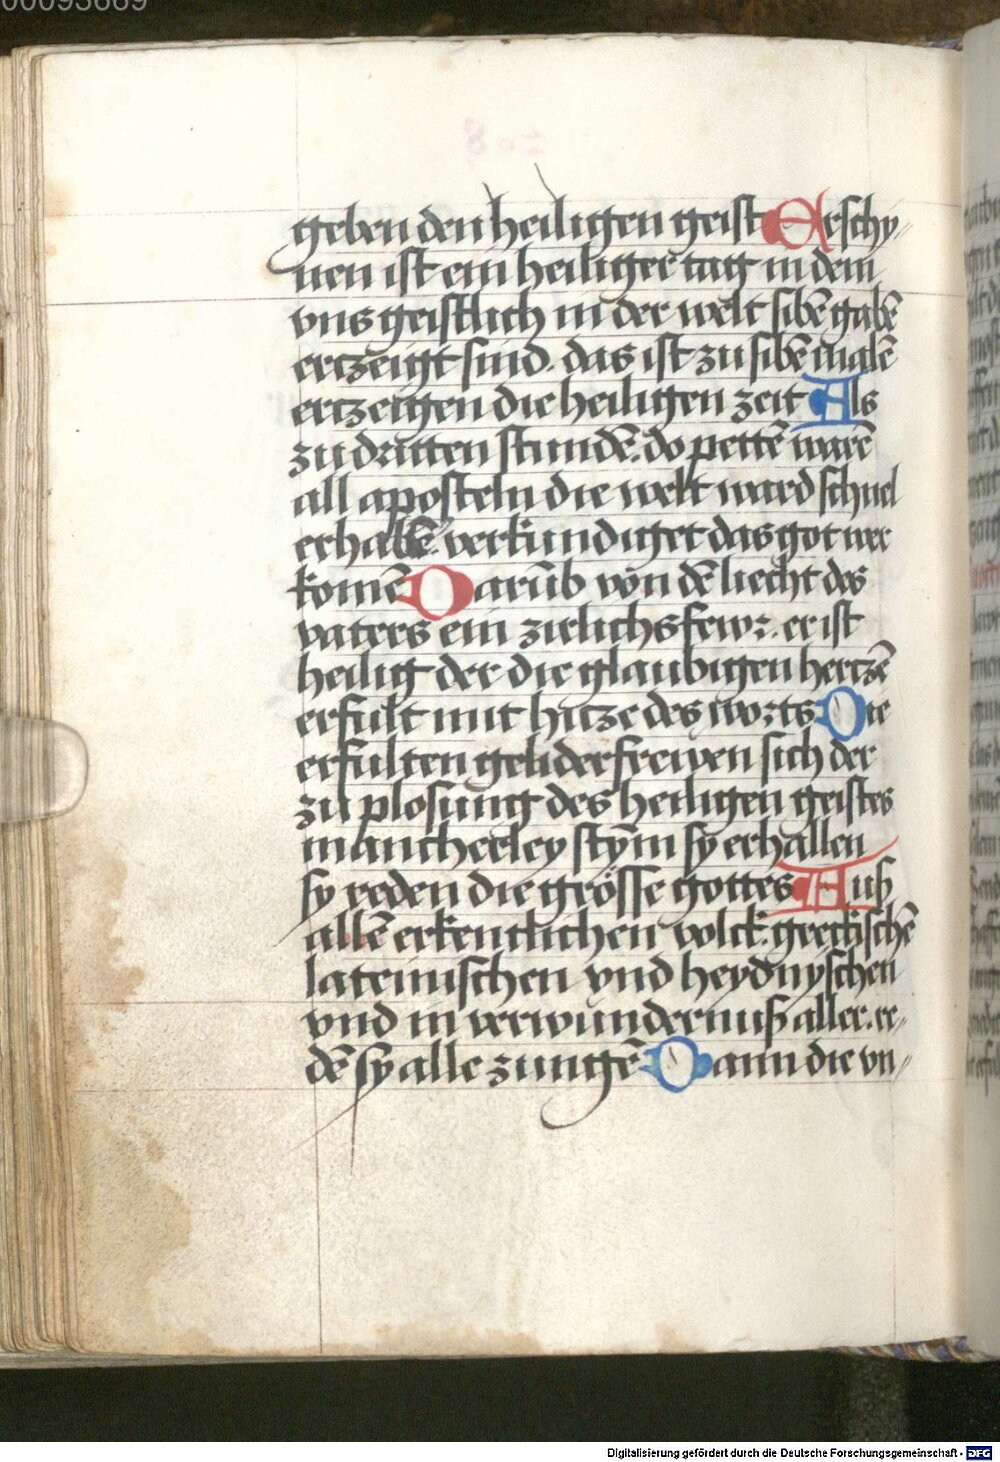 00093689
geben den heiligen geist Erschy„
nen ist ein heiliger tag in dem
vns geistlich in der welt sibē gabē
ertzeigt sind. das ist zu sibē malē
ertzeigen die heiligen zeit Als
zu dritten stundē. do pettē warē
all aposteln die welt ward schnel
erhabē. verkundiget das got wer
komē Darūb von dē liecht des
vaters ein zirlichs fewr. er ist
heilig der die glaubigen hertzē
erfult mit hitze des worts Die
erfulten gelider frewen sich der
zu plosung des heiligen geistes
mancherley stym sy erhallen
sy reden die grösse gottes Auß
allē erkentlichen volck. greckischē
lateinischen vnd heydnyschen
vnd in verwundernuß aller. re„
dē sy alle zungē Dann die vn„
Digitalisierung gefördert durch die Deutsche Forschungsgemeinschaft - DFG